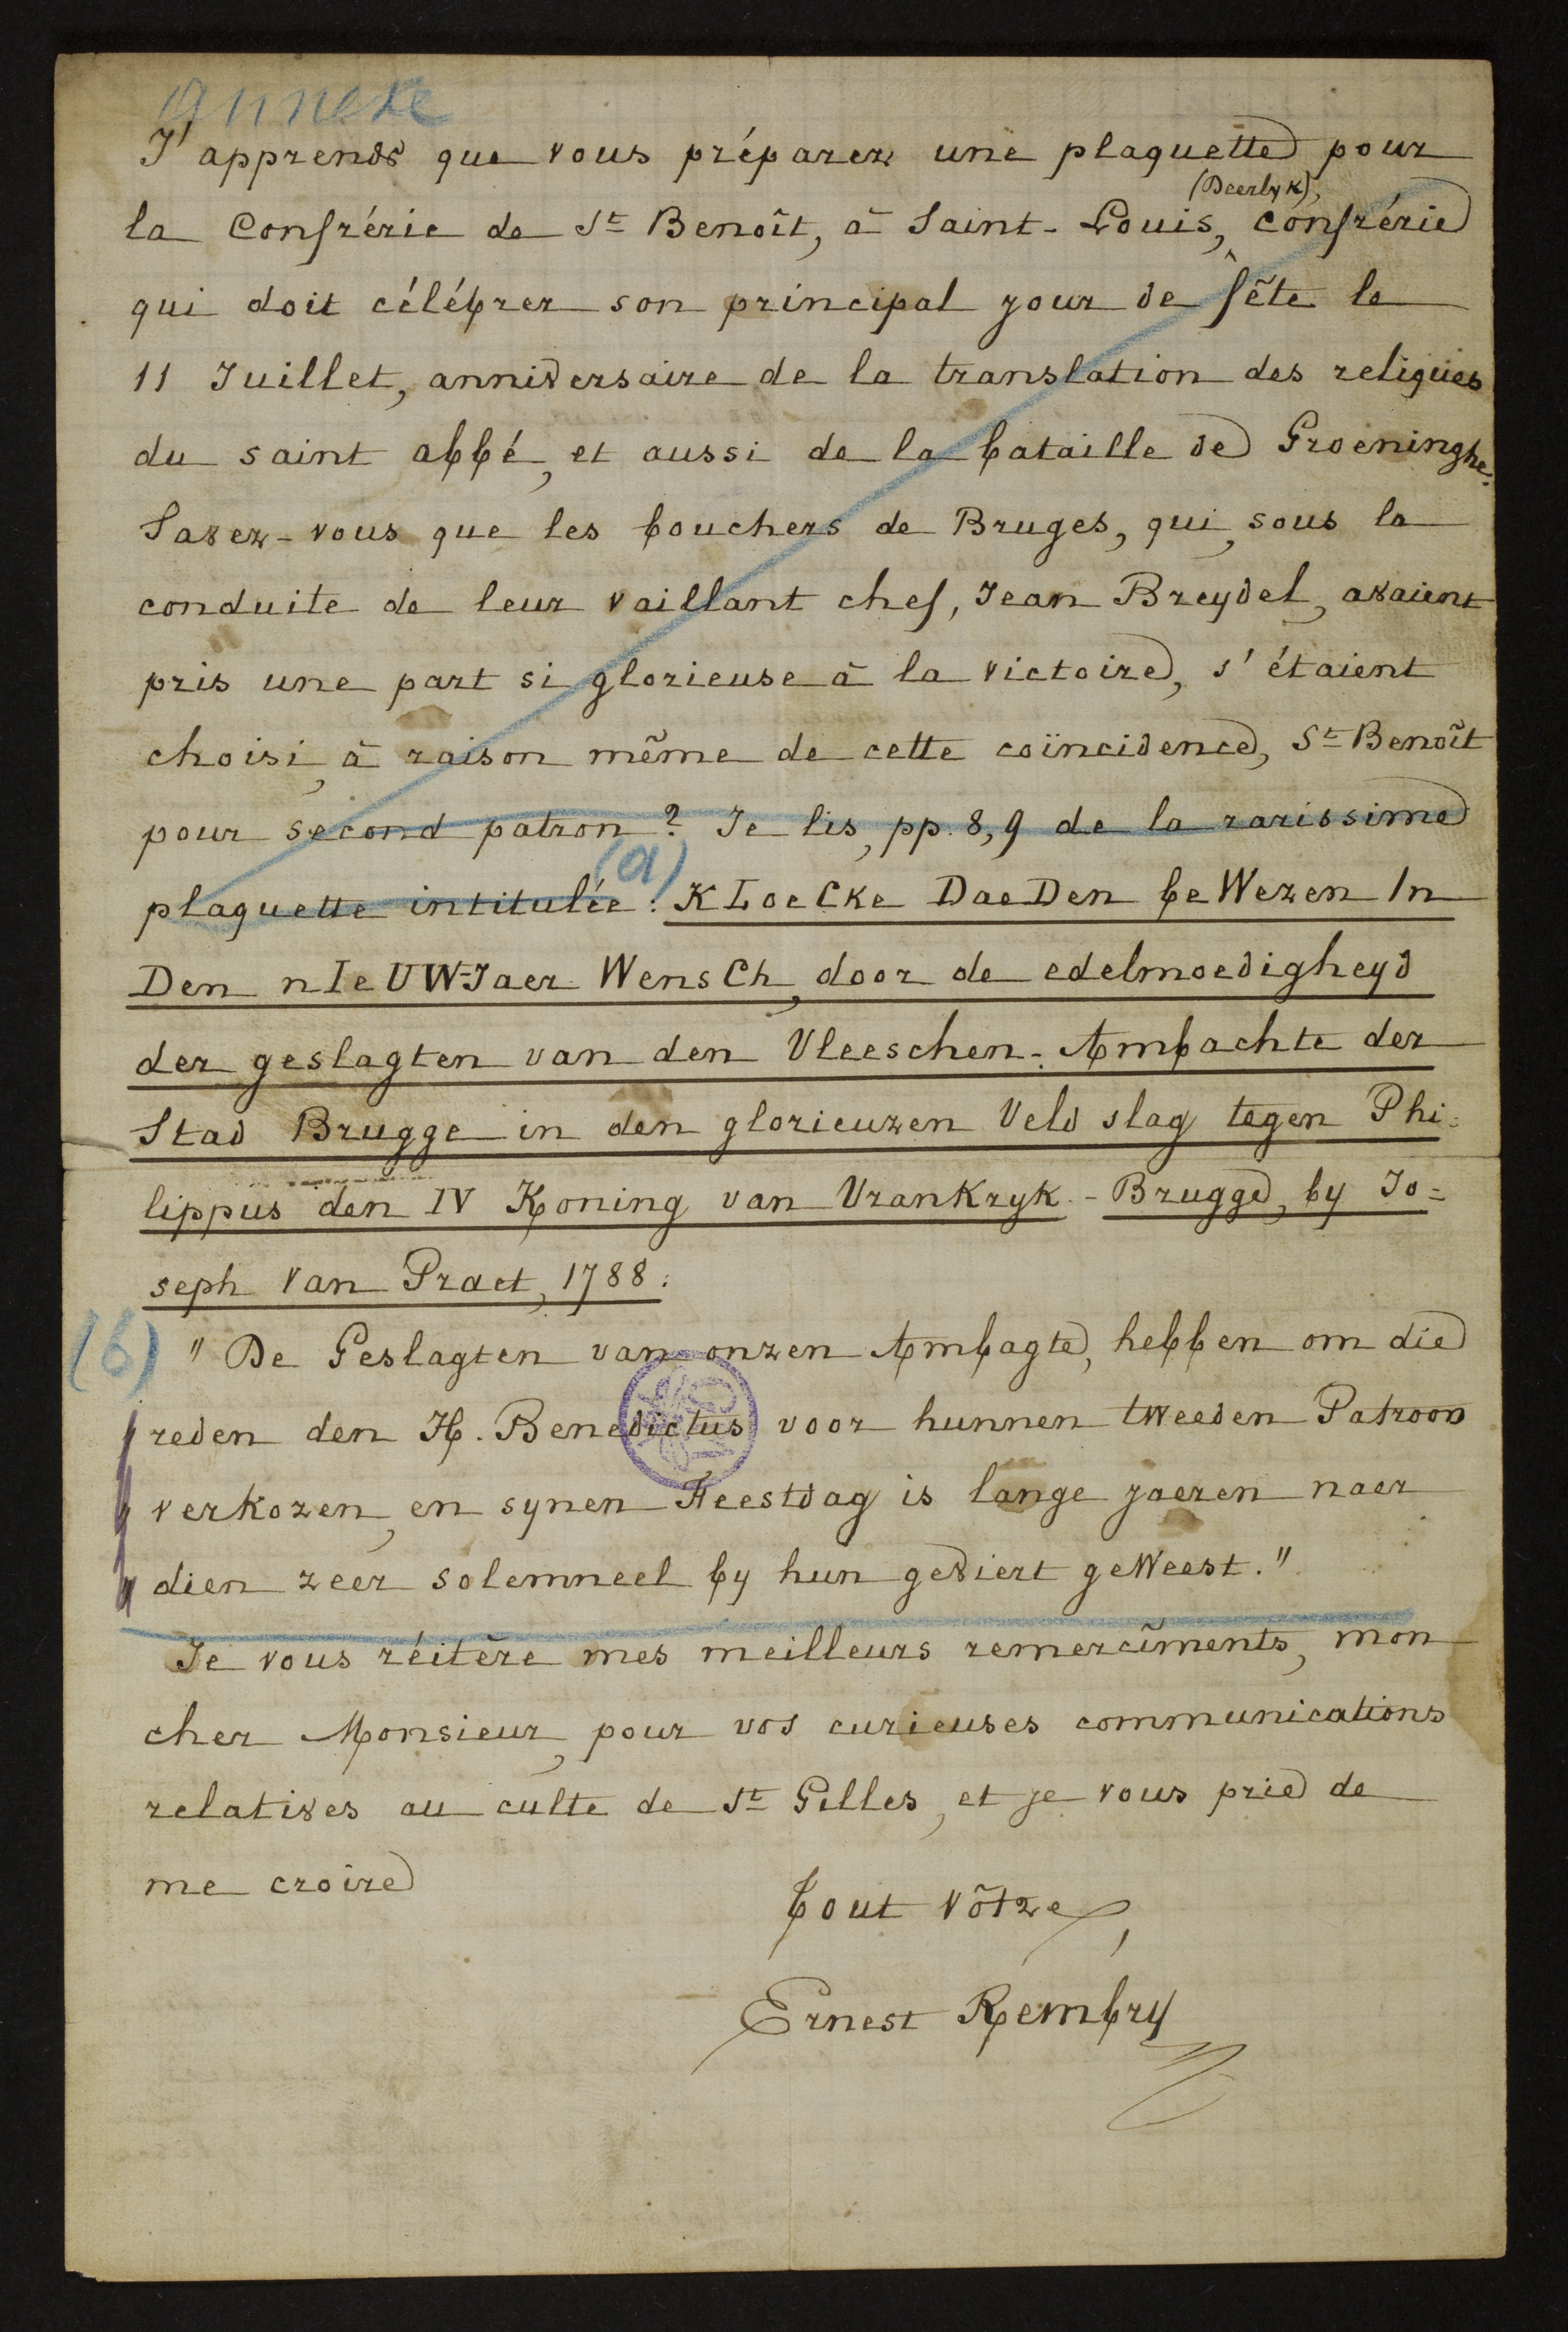 annexe
J'apprends que vous préparez une plaquette pour
(Deerlyk),
la Confrérie de St Benoît, à Saint-Louis, confrérie
qui doit célébrer son principal jour de fête le
11 Juillet, anniversaire de la translation des reliques
du saint abbé, et aussi de la bataille de Groeninghe.
Savez-vous que les bouchers de Bruges, qui, sous la
conduite de leur vaillant chef, Jean Breydel, avaient
pris une part si glorieuse à la victoire, s'étaient
choisi, à raison même de cette coïncidence, St Benoît
pour second patron? Je lis, pp. 8, 9 de la rarissime
(a)
plaquette intitulée: KLoeCke DaeDen beWezen In
Den nIeUW-Jaer WensCh, door de edelmoedigheyd
der geslagten van den Vleeschen-Ambachte der
Stad Brugge in den glorieuzen Veld slag tegen Phi-
lippus den IV Koning van Vrankryk - Brugge, by Jo=
seph Van Praet, 1788.
(b) "De Geslagten van onzen Ambagte, hebben om die
" reden den H. Benedictus voor hunnen tweeden Patroon
" verkozen, en synen Feestdag is lange jaeren naer
" dien zeer solemneel by hun geviert geweest."
Je vous réitère mes meilleurs remercîments, mon
cher Monsieur, pour vos curieuses communications
relatives au culte de St Gilles, et je vous prie de
me croire
tout vôtre,
Ernest Rembry